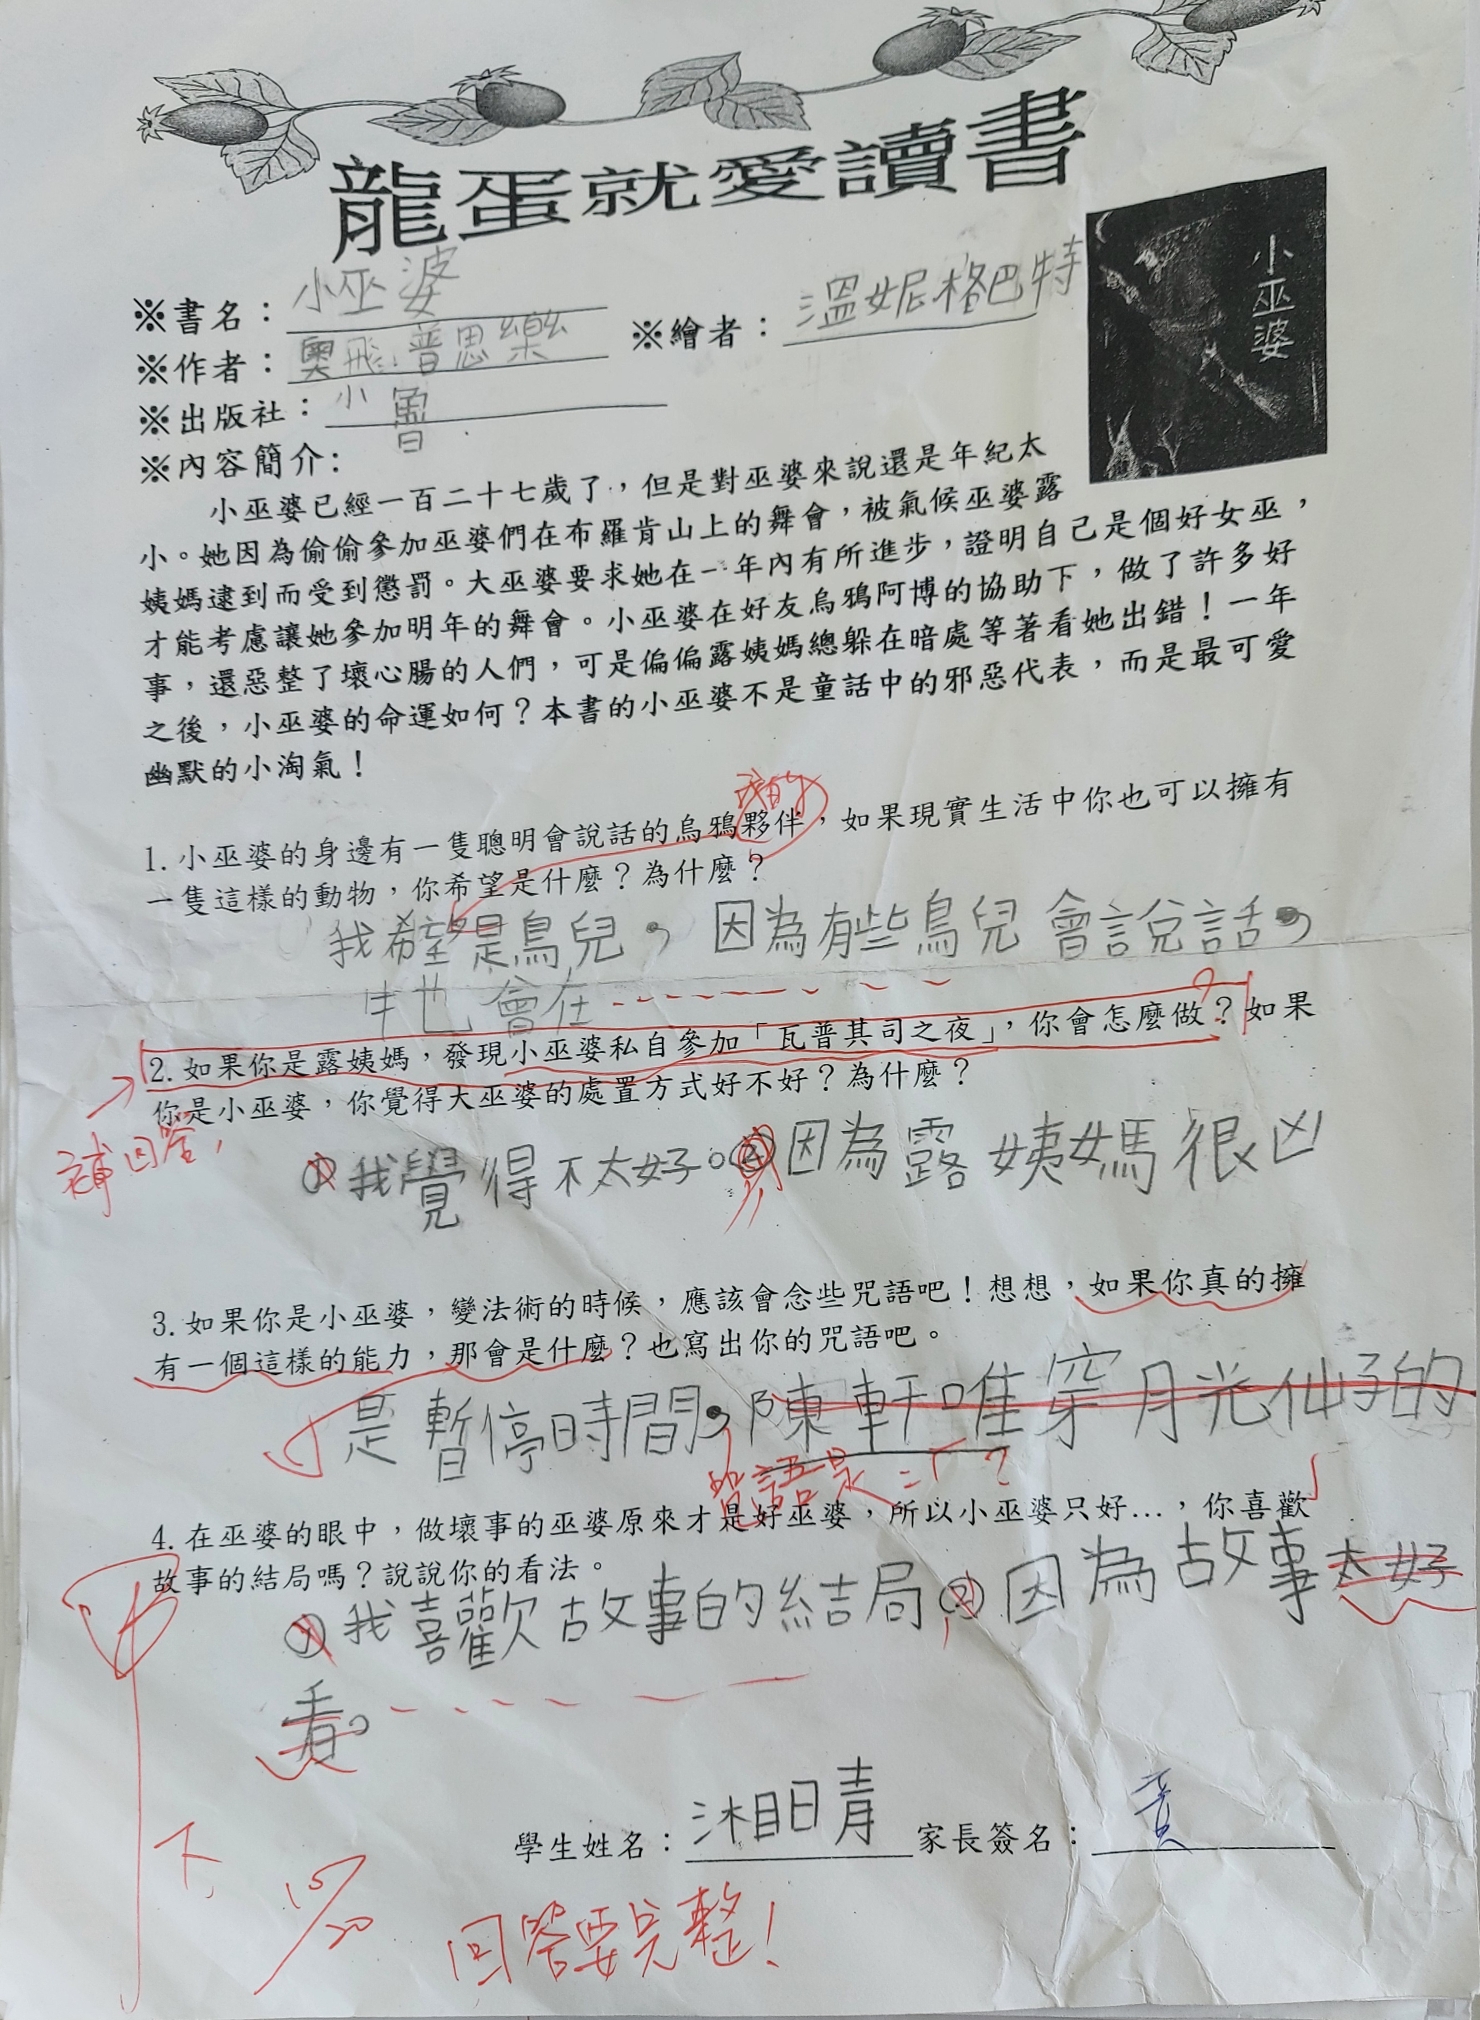 龍蛋就愛讀書
小巫婆
※書名：小巫婆
※繪者：溫妮格巴特
※作者：奧飛普思樂
※出版社：小魯
※內容簡介：
小巫婆已經一百二十七歲了，但是對巫婆來說還是年紀太
小。她因為偷偷參加巫婆們在布羅肯山上的舞會，被氣候巫婆露
姨媽逮到而受到懲罰。大巫婆要求她在一年內有所進步，證明自己是個好女巫，
才能考慮讓她參加明年的舞會。小巫婆在好友烏鴉阿博的協助下，做了許多好
事，還惡整了壞心腸的人們，可是偏偏露姨媽總躲在暗處等著看她出錯！一年
之後，小巫婆的命運如何？本書的小巫婆不是童話中的邪惡代表，而是最可愛
幽默的小淘氣！
我的
1.小巫婆的身邊有一隻聰明會說話的烏鴉夥伴，如果現實生活中你也可以擁有
一隻這樣的動物，你希望是什麼？為什麼？
我希望是鳥兒，因為有些鳥兒會說話，
牠會在
2.如果你是露姨媽，發現小巫婆私自參加「瓦普其司之夜」，你會怎麼做？如果
你是小巫婆，你覺得大巫婆的處置方式好不好？為什麼？
補回答，
①我覺得不太好。②因為露姨媽很凶
3.如果你是小巫婆，變法術的時候，應該會念些咒語吧！想想，如果你真的擁
有一個這樣的能力，那會是什麼？也寫出你的咒語吧。
是暫停時間，陳軒唯穿月光仙子的
咒語是：「？」
4.在巫婆的眼中，做壞事的巫婆原來才是好巫婆，所以小巫婆只好…，你喜歡
故事的結局嗎？說說你的看法。
①我喜歡故事的結局②因為故事太好
看。
學生姓名：
家長簽名：
下
10/20
回答要完整！